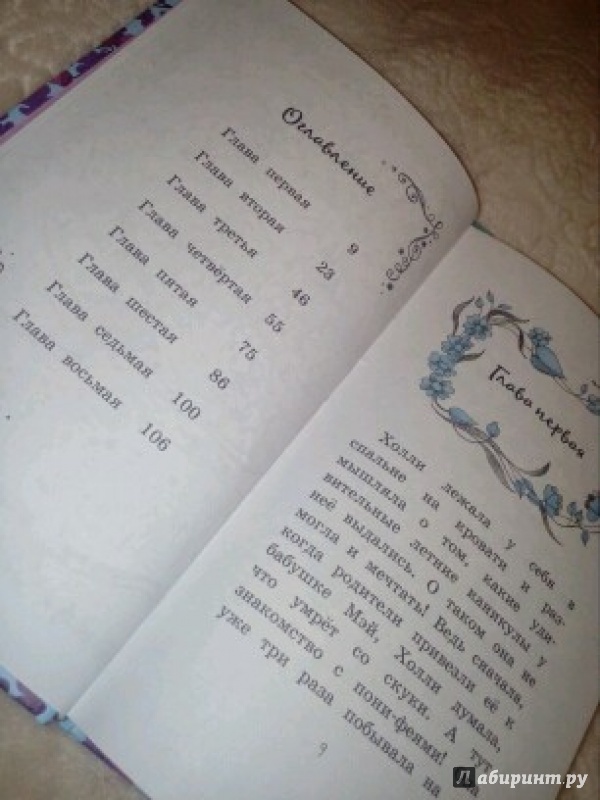 Оглавление
Глава первая 9
Глава вторая 23
Глава третья 46
Глава четвёртая 55
Глава пятая 75
Глава шестая 86
Глава седьмая 100
Глава восьмая 106
Глава первая
Холли лежала у себя в
спальне на кровати и раз-
мышляла о том, какие уди-
вительные летние каникулы у
неё выдались. О таком она не
могла и мечтать! Ведь сначала,
когда родители привезли её к
бабушке Мэй, Холли думала,
что умрёт со скуки. А тут
знакомство с пони-феями!
уже три раза побывала на
9
Лабиринт.ру